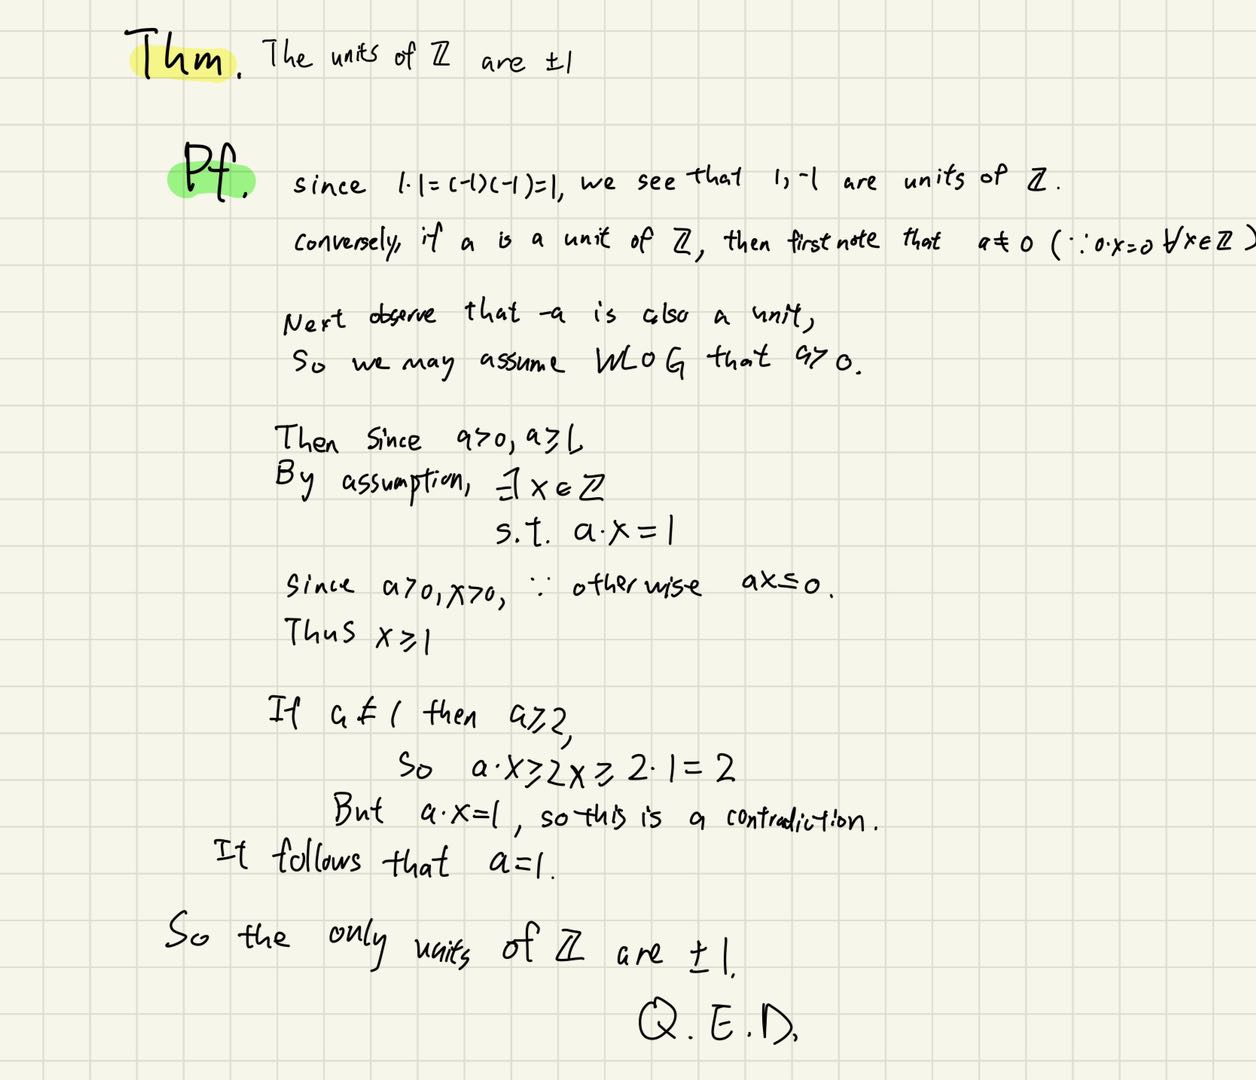 Thm. The units of ℤ are ±1
Pf. since 1·1=(-1)(-1)=1, we see that 1,-1 are units of ℤ.
conversely, if a is a unit of ℤ, then first note that a≠0 (∵0·x=0 ∀x∈ℤ)
Next observe that -a is also a unit,
So we may assume WLOG that a>0.
Then since a>0, a≥1.
By assumption, ∃x∈ℤ
s.t. a·x=1
since a>0, x>0, ∵ otherwise ax≤0.
Thus x≥1
If a≠1 then a≥2,
So a·x≥2x≥2·1=2
But a·x=1, so this is a contradiction.
It follows that a=1.
So the only units of ℤ are ±1.
Q.E.D.